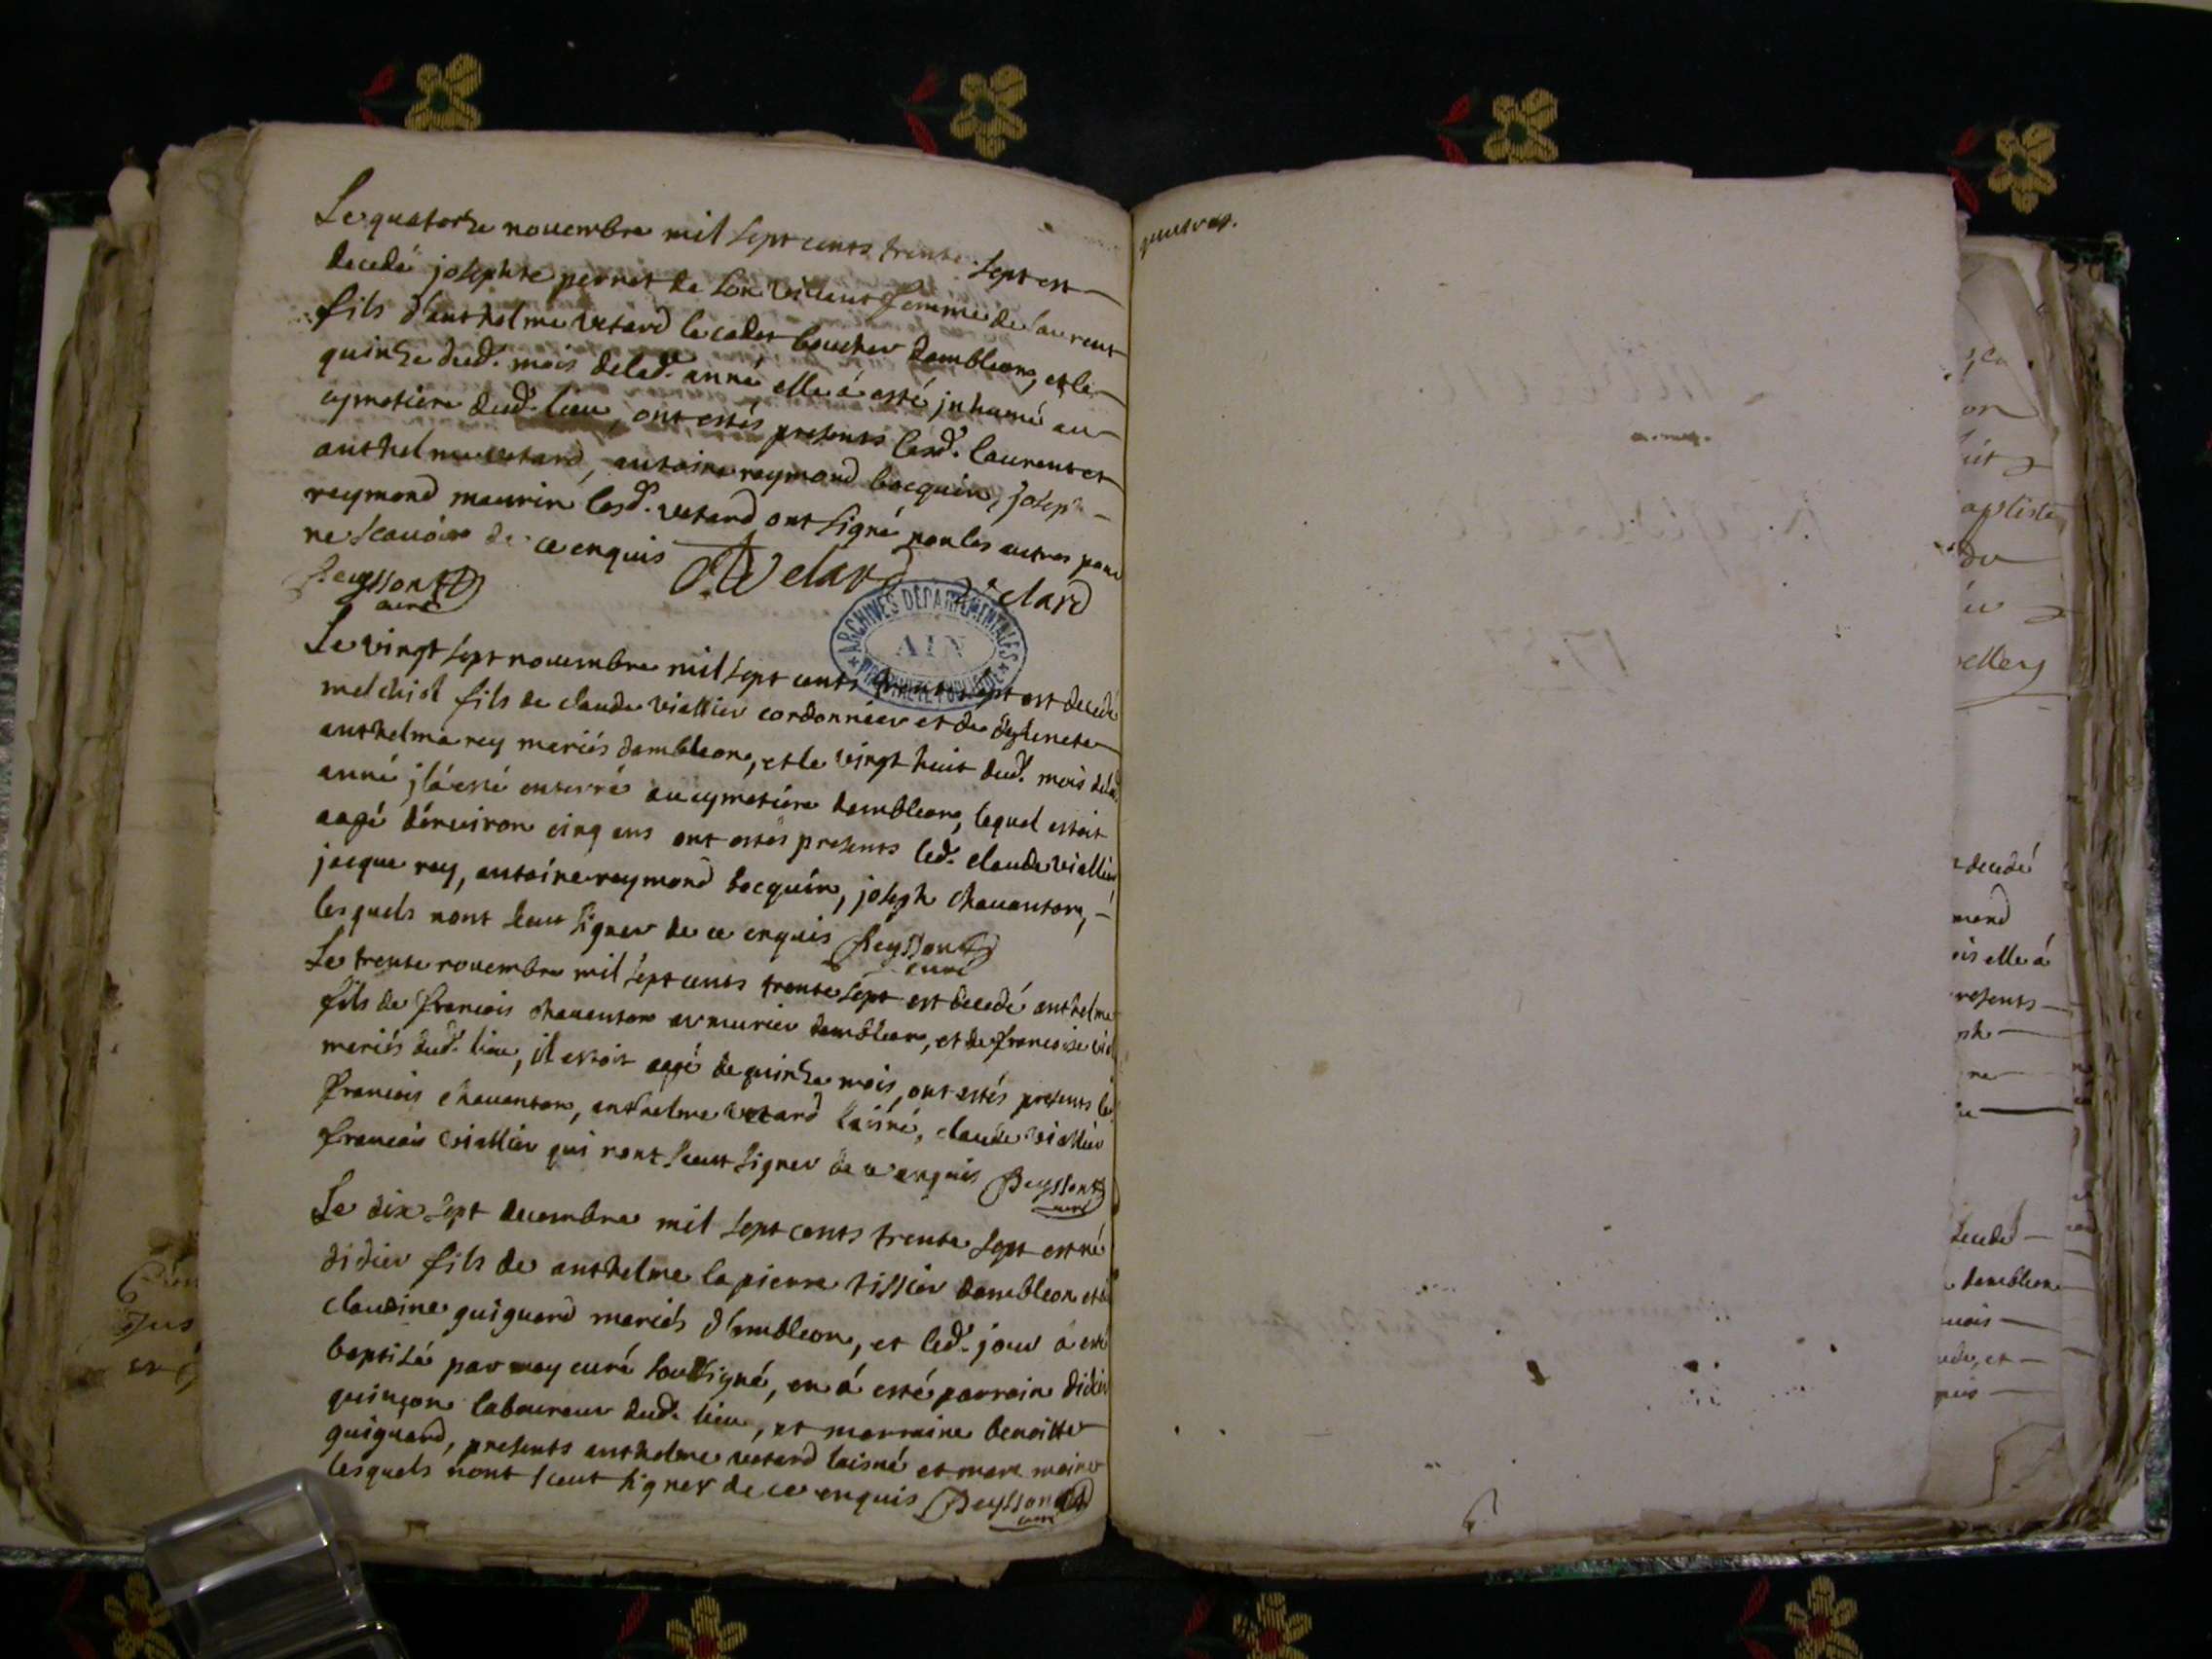 Le quatorze novembre mil sept cents trente sept est
decedé josephte perret de son vivant femme de laurent
fils d'anthelme vetard le cadet boucher dambleon, et le
quinze dud. mois de lad. anné elle á esté inhumé au
cymetiere dud. lieu, ont estés presents lesd. laurent et
anthelme vetard, antoine reymond bocquin, joseph
reymond maurin lesd. vetard ont signé non les autres pour
ne scavoir de ce enquis Vetard Vetard
Peysson curé
ARCHIVES DÉPARTEMENTALES
AIN
PROPRIÉTÉ PUBLIQUE
Le vingt sept novembre mil sept cents trente sept est decedé
melchiol fils de claude viallier cordonnier et de
anthelma rey mariés dambleon, et le vingt huit dud. mois
anné il á esté enterré au cymetiere dambleon, lequel estoit
aagé dénviron cinq ans ont estés presents led. claude viallier
jacque rey, antoine reymond bocquin, joseph chavanton,
lesquels nont sceut signer de ce enquis Peysson
curé
Le trente novembre mil sept cents trente sept est decedé anthelme
fils de francois chavanton armurier dambleon, et de francoise
mariés dud. lieu, il estoit aagé de quinze mois, ont estés presents led.
francois chavanton, anthelme vetard laisné, claude viallier
francois viallier qui nont sceut signer de ce enquis Peysson
curé
Le dix sept decembre mil sept cents trente sept est né
didier fils de anthelme lapierre tissier dambleon et de
claudine guiguard mariés d'ambleon, et led. jour á esté
baptisé par moy curé soussigné, en á esté parrain didier
quinçon laboureur dud. lieu, et marraine benoitte
guiguard, presents anthelme vetard laisné et marc
lesquels nont sceut signer de ce enquis Peysson
curé
decedé
mond
elle á
presents
decedé
dambleon
mois